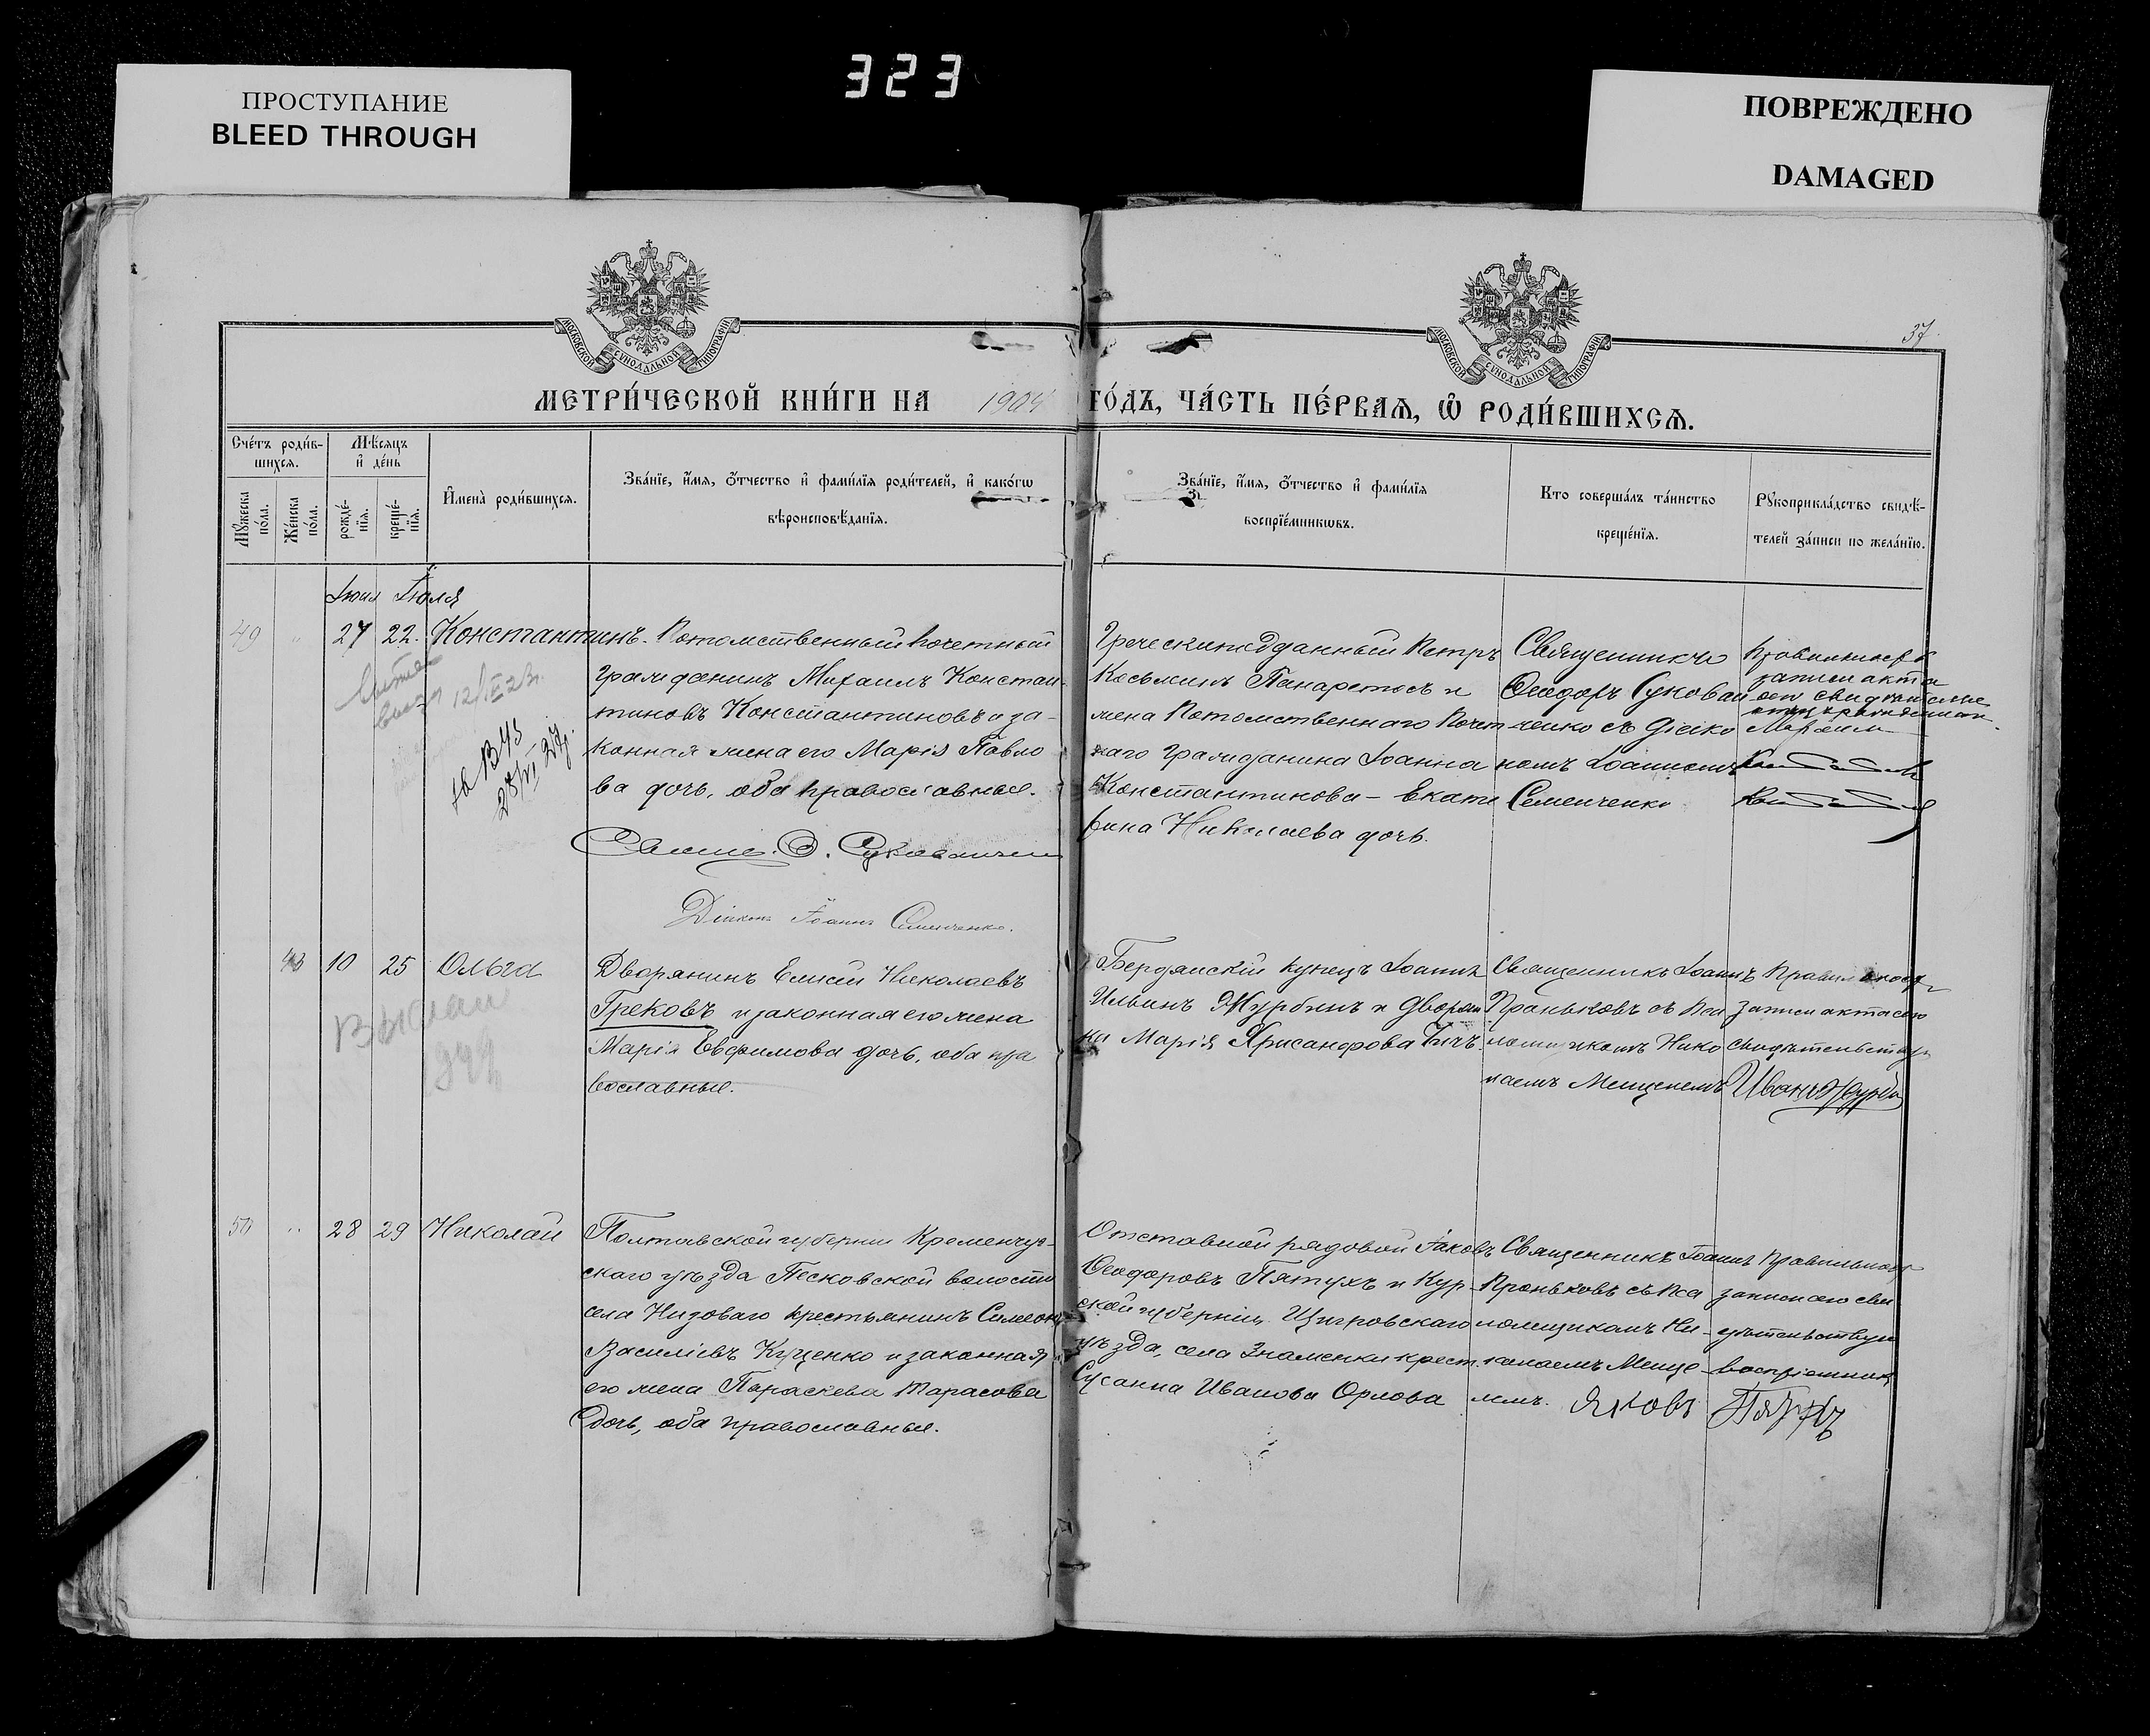 323
ПРОСТУПАНИЕ
BLEED THROUGH
ПОВРЕЖДЕНО
DAMAGED
МОСКОВСКОЙ СѴНОДАЛЬНОЙ ТИПОГРАФІИ
МОСКОВСКОЙ СѴНОДАЛЬНОЙ ТИПОГРАФІИ
37
МЕТРИ́ЧЕСКОЙ КНИ́ГИ НА 1904
ГО́ДЪ, ЧА́СТЬ ПЕ́РВАѦ, Ѡ РОДИ́ВШИХСѦ.
Сче́тъ роди́в-
шихсѧ.
Мꙋ́жеска
по́ла.
Же́нска
по́ла.
Мѣ́сѧцъ
и де́нь
рожде́-
нїѧ.
креще́-
нїѧ.
Имена̀ роди́вшихсѧ.
Зва́нїе, и́мѧ, о́тчество и фами́лїѧ роди́телей, и како́гѡ
вѣроисповѣ́данїѧ.
Зва́нїе, и́мѧ, о́тчество и фами́лїѧ
воспрїе́мникѡвъ.
Кто соверша́лъ та́инство
креще́нїѧ.
Рꙋкоприкла́дство свидѣ́-
телей за́писи по жела́нїю.
Іюня Іюля
49 " 27 22. Константинъ.
Потомственный Почетный
гражданинъ Михаилъ Констан-
тиновъ Константиновъ и за-
конная жена его Марія Павло
ва дочь, оба православные.
Діаконъ Іоаннъ Семенченко.
Греческиподданный Петръ
Косьминъ Панаретосъ и
жена Потомственнаго Почет
наго гражданина Іоанна
Константинова - Екате
рина Николаева дочь.
Священникъ
Ѳеодоръ Сукован
ченко съ діако
номъ Іоанномъ
Семенченко
записи акта
28/VI 27
43 10 25 Ольга
Дворянинъ Елисей Николаевъ
Грековъ и законная его жена
Марія Евфимова дочь, оба пра
вославные.
Бердянскій купецъ Іоаннъ
Ильинъ Журбинъ и дворян
ка Марія Хрисанфова
Священникъ Іоаннъ
Праньковъ съ пса
ломщикомъ Нико
лаемъ
записи акта сего
свидѣтельствую
Иванъ Журбин
50 " 28 29 Николай
Полтавской губерніи Кременчуг-
скаго уѣзда Песковской волости
села Низоваго крестьянинъ Симеонъ
Василіевъ Куценко и законная
его жена Параскева Тарасова
дочь, оба православные.
Отставной рядовой Іаковъ
Ѳеодоровъ Пятухъ и Кур-
ской губерніи Щигровскаго
уѣзда, села Знаменки крест.
Сусанна Иванова Орлова
Священникъ Іоаннъ
Проньковъ съ пса
ломщикомъ Ни-
колаемъ Меще
мъ.
Правильность
записи сего сви
дѣтельствую
воспріемникъ
Яковъ Пятухъ